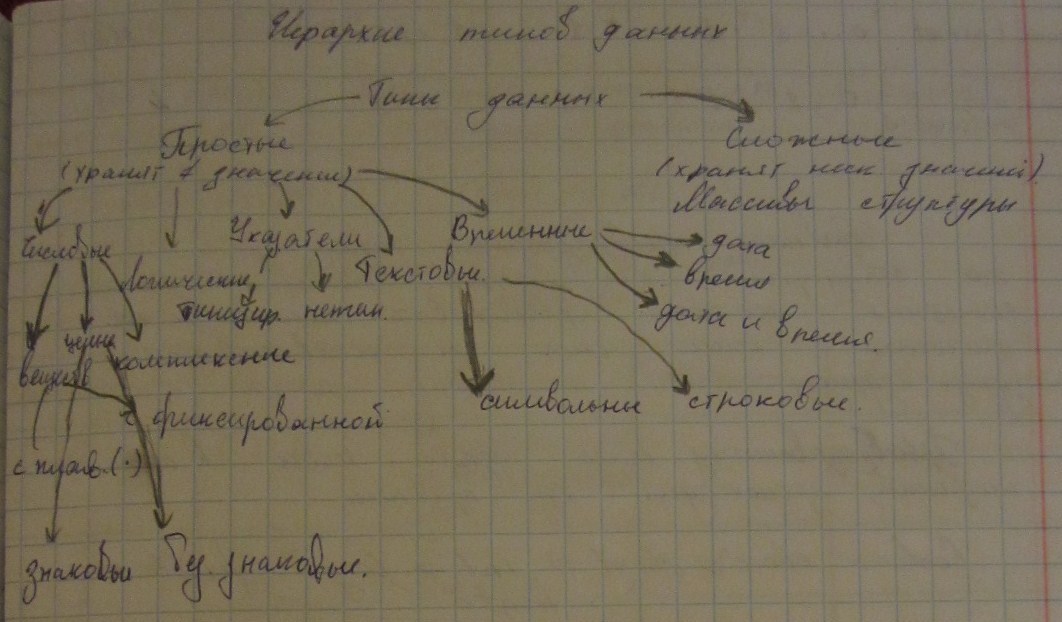 Иерархие типов данных
Типы данных
Простые
Сложные
(хранят 1 значение)
(хранят неск значений)
Массивы структуры
Числовые
Указатели
Временные
дата
Логические
Текстовые.
время
типизир. нетип.
дата и время.
целые
комплексные
веществ
символьны
строковые.
с фиксированной
с плав.(·)
знаковые
без знаковые.